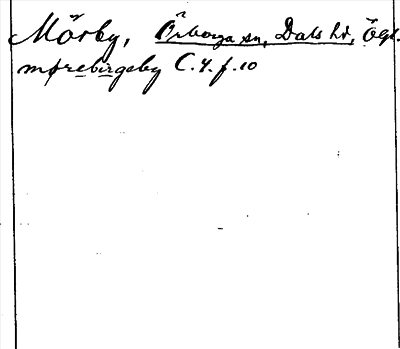 Mörby, Örberga sn, Dals hd, Ögl.
mørebirgeby C. 4. f. 10